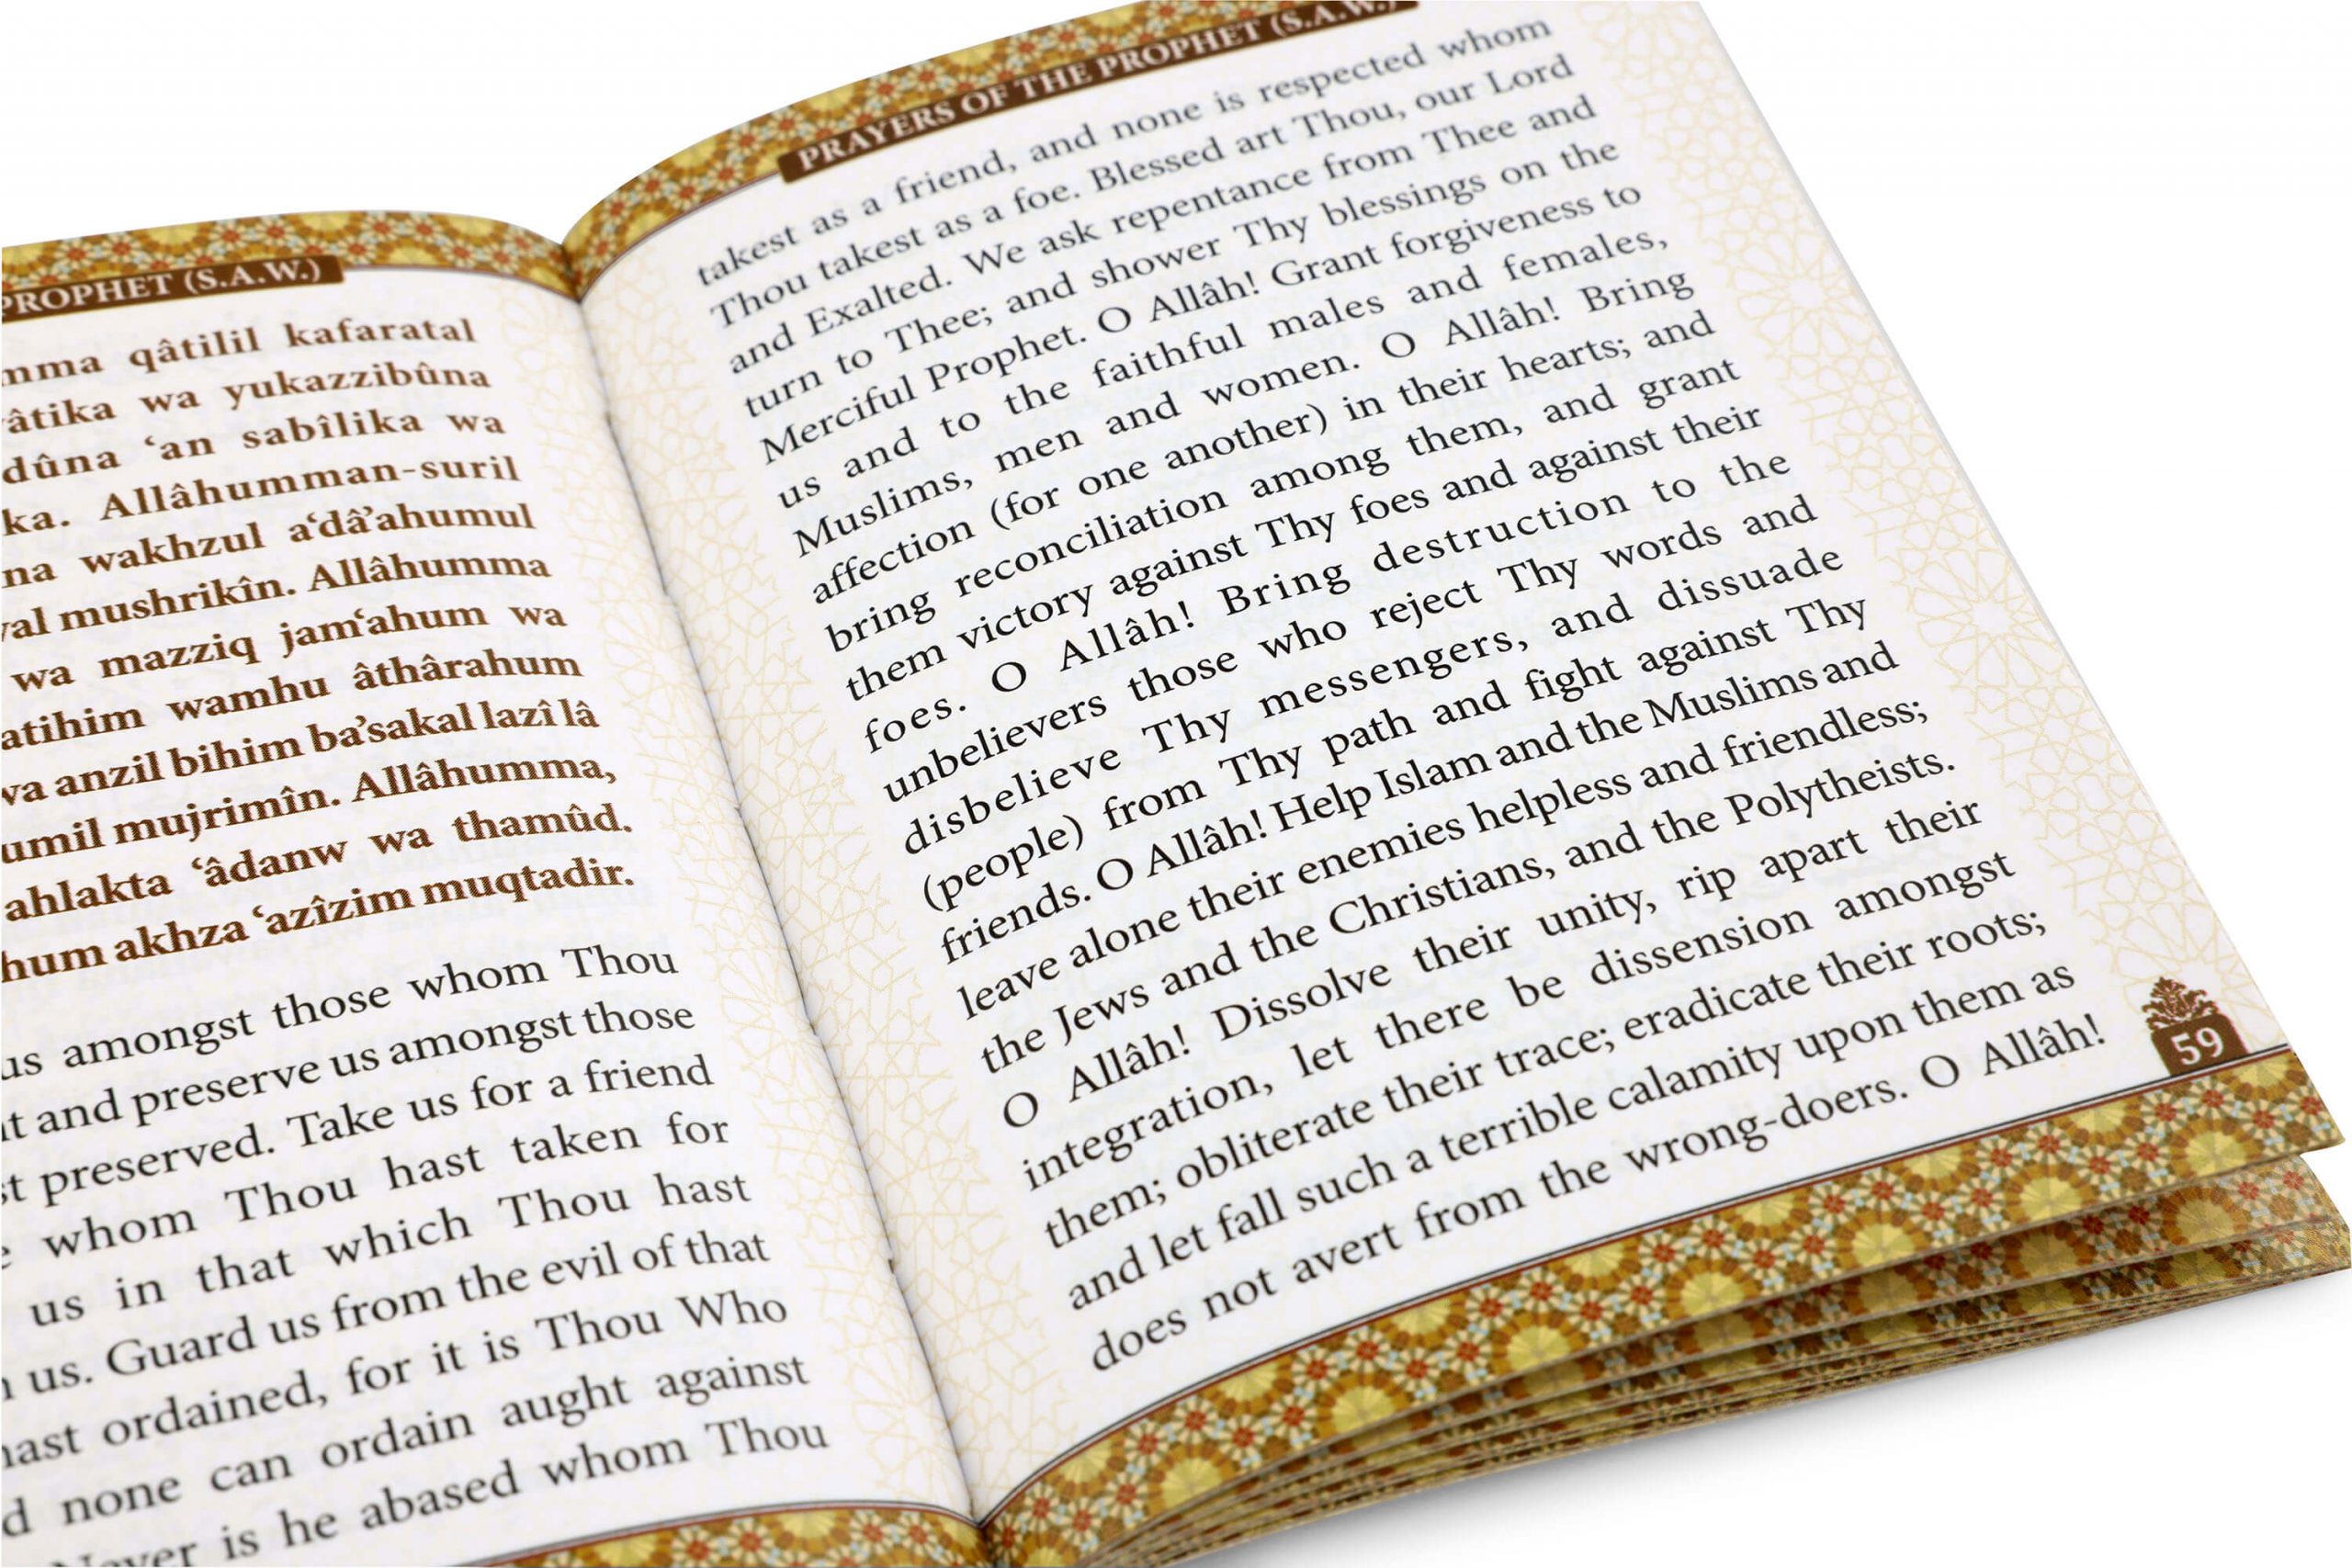 PROPHET (S.A.W.)
qâtilil kafaratal
wa yukazzibûna
‘an sabîlika wa
Allâhumman-suril
wakhzul a‘dâ’ahumul
mushrikîn. Allâhumma
wa mazziq jam‘ahum wa
wamhu âthârahum
anzil bihim ba’sakal lazî lâ
mujrimîn. Allâhumma,
ahlakta ‘âdanw wa thamûd.
akhza ‘azîzim muqtadir.
us amongst those whom Thou
and preserve us amongst those
preserved. Take us for a friend
whom Thou hast taken for
us in that which Thou hast
us. Guard us from the evil of that
ordained, for it is Thou Who
none can ordain aught against
Never is he abased whom Thou
PRAYERS OF THE PROPHET (S.A.W.)
takest as a friend, and none is respected whom
Thou takest as a foe. Blessed art Thou, our Lord
and Exalted. We ask repentance from Thee and
turn to Thee; and shower Thy blessings on the
Merciful Prophet. O Allâh! Grant forgiveness to
us and to the faithful males and females,
Muslims, men and women. O Allâh! Bring
affection (for one another) in their hearts; and
bring reconciliation among them, and grant
them victory against Thy foes and against their
foes. O Allâh! Bring destruction to the
unbelievers those who reject Thy words and
disbelieve Thy messengers, and dissuade
(people) from Thy path and fight against Thy
friends. O Allâh! Help Islam and the Muslims and
leave alone their enemies helpless and friendless;
the Jews and the Christians, and the Polytheists.
O Allâh! Dissolve their unity, rip apart their
integration, let there be dissension amongst
them; obliterate their trace; eradicate their roots;
and let fall such a terrible calamity upon them as
does not avert from the wrong-doers. O Allâh!
59